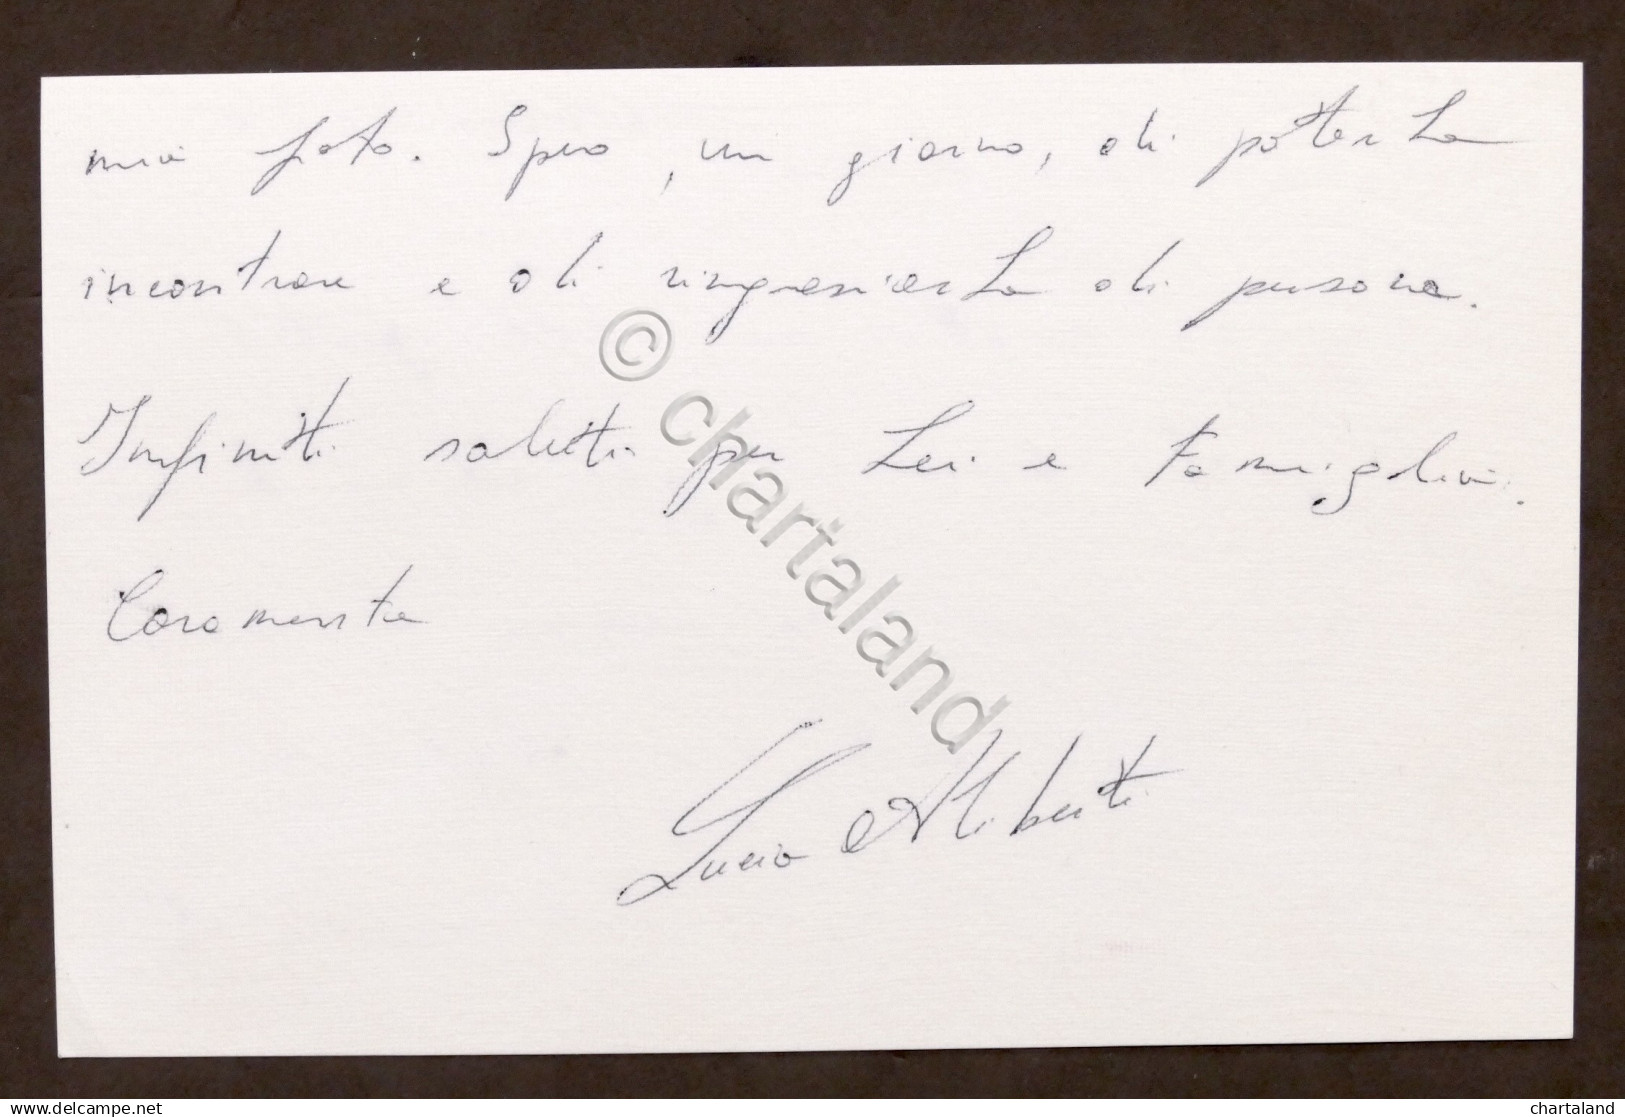 mia foto. Spero, un giorno, di poterLa
incontrare e di ringraziarLa di persona.
Infiniti saluti per Lei e famiglia.
Caramente
Lucia Aliberti
© chartaland
www.delcampe.net
chartaland